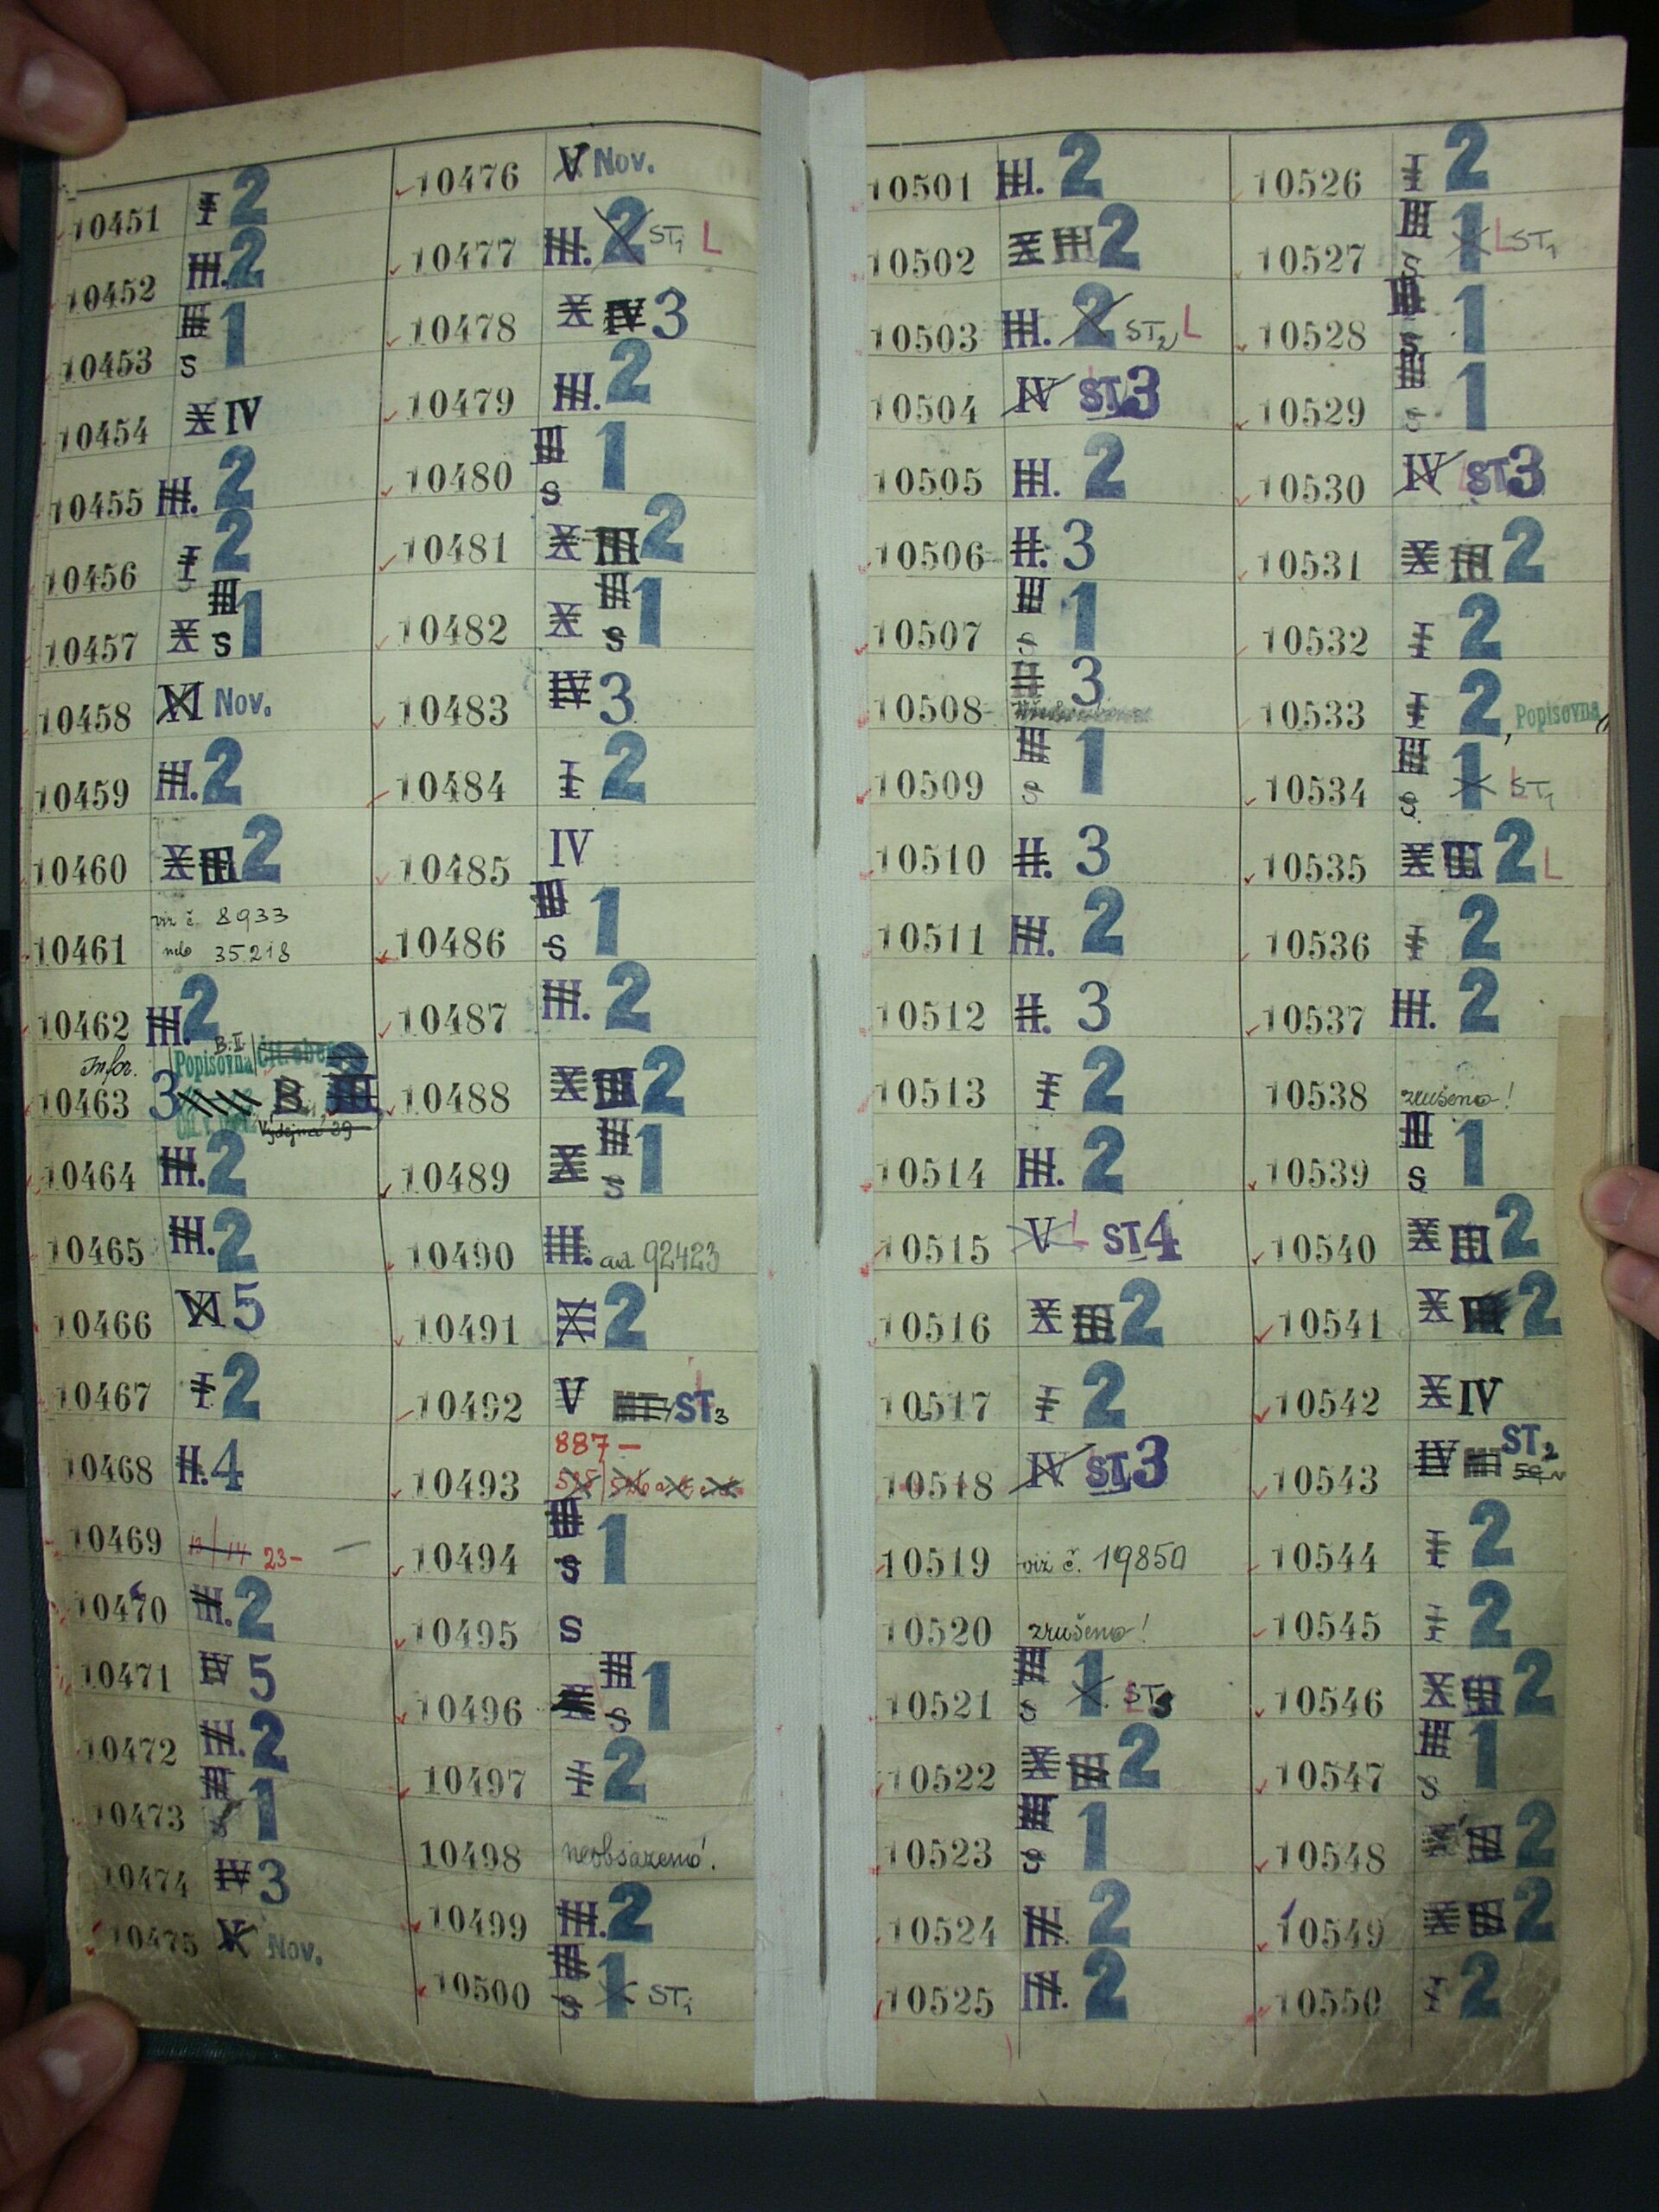 10451 I 2
10452 III. 2
10453 III S 1
10454 X IV
10455 III. 2
10456 I 2
10457 X III S 1
10458 XI Nov.
10459 III. 2
10460 X III 2
10461 viz č. 8933
nebo 35.218
10462 III. 2
Infor. B.II
10463 3 Popisovna B III
Výdejna 39
10464 III. 2
10465 III. 2
10466 VI 5
10467 I 2
10468 II. 4
10469 23-
10470 III. 2
10471 IV 5
10472 III. 2
10473 III S 1
10474 IV 3
10475 V Nov.
10476 V Nov.
10477 III. 2 ST1 L
10478 X IV 3
10479 III. 2
10480 III S 1
10481 X III 2
10482 X III S 1
10483 IV 3
10484 I 2
10485 IV
10486 III S 1
10487 III. 2
10488 X III 2
10489 X III S 1
10490 III. ad 92423
10491 III 2
10492 V ST3
887 —
10493
10494 III S 1
10495 S
10496 X III S 1
10497 I 2
10498 neobsazeno!
10499 III. 2
10500 III S 1 ST1
10501 III. 2
10502 X III 2
10503 III. 2 ST2 L
10504 IV ST3
10505 III. 2
10506 II. 3
10507 III S 1
10508 II 3
10509 III S 1
10510 II. 3
10511 III. 2
10512 II. 3
10513 I 2
10514 III. 2
10515 V L ST4
10516 X III 2
10517 I 2
10518 IV ST3
10519 viz č. 19850
10520 zrušeno!
10521 III S 1 ST3
10522 X III 2
10523 III S 1
10524 III. 2
10525 III. 2
10526 I 2
10527 III S 1 L ST1
10528 III S 1
10529 III S 1
10530 IV ST3
10531 X III 2
10532 I 2
10533 I 2, Popisovna
10534 III S 1 L ST1
10535 X III 2 L
10536 I 2
10537 III. 2
10538 zrušeno!
10539 III S 1
10540 X III 2
10541 X III 2
10542 X IV
10543 IV ST2
10544 I 2
10545 I 2
10546 X III 2
10547 III S 1
10548 X III 2
10549 X III 2
10550 I 2